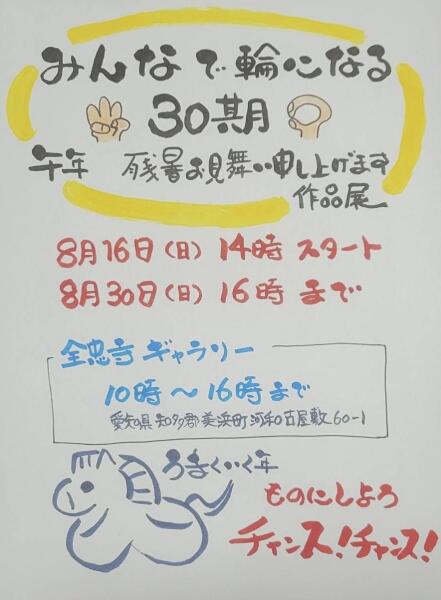 みんなで輪になる
30期
午年 残暑お見舞い申し上げます
作品展
8月16日(日) 14時 スタート
8月30日(日) 16時 まで
全忠寺 ギャラリー
10時～16時まで
愛知県知多郡美浜町河和古屋敷60-1
うまくいく年
ものにしよう
チャンス!チャンス!